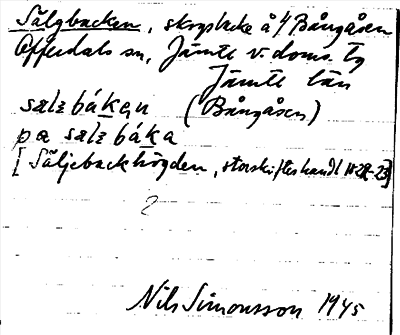 Sälgbacken, skogsbacke å 4/ Bångåsen
Offerdals sn, Jämtl. v. doms. tg
Jämtl. län
sælʒbákąn (Bångåsen)
pa sælʒbáka
[Säljebackhögden, storskifteshandl 1822-23]
?
Nils Simonsson 1945